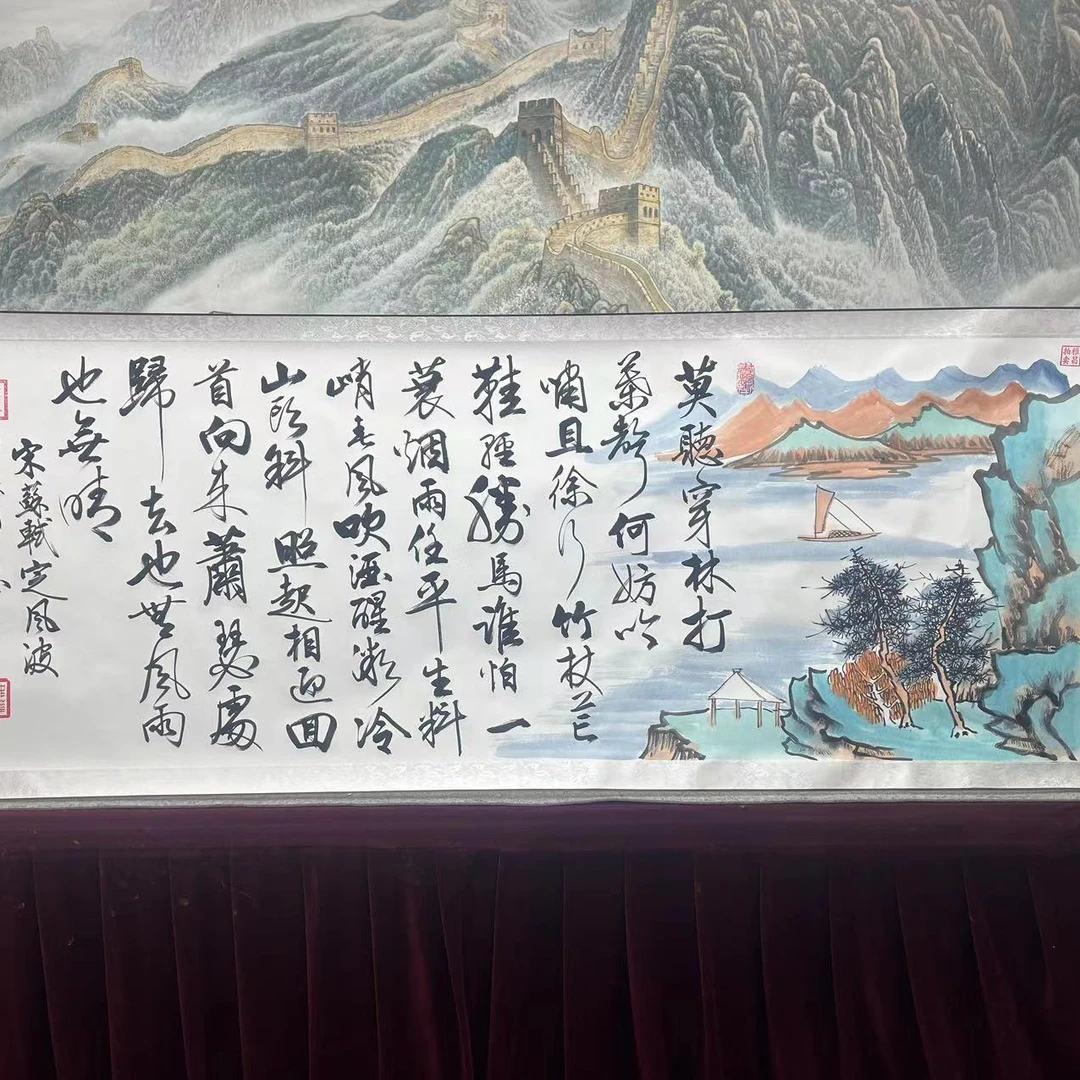 莫聽穿林打
葉聲何妨吟
嘯且徐行竹杖芒
鞋輕勝馬誰怕一
蓑烟雨任平生料
峭春風吹酒醒微冷
山頭斜照却相迎回
首向来蕭瑟處
歸去也無風雨
也無晴
宋蘇軾定風波